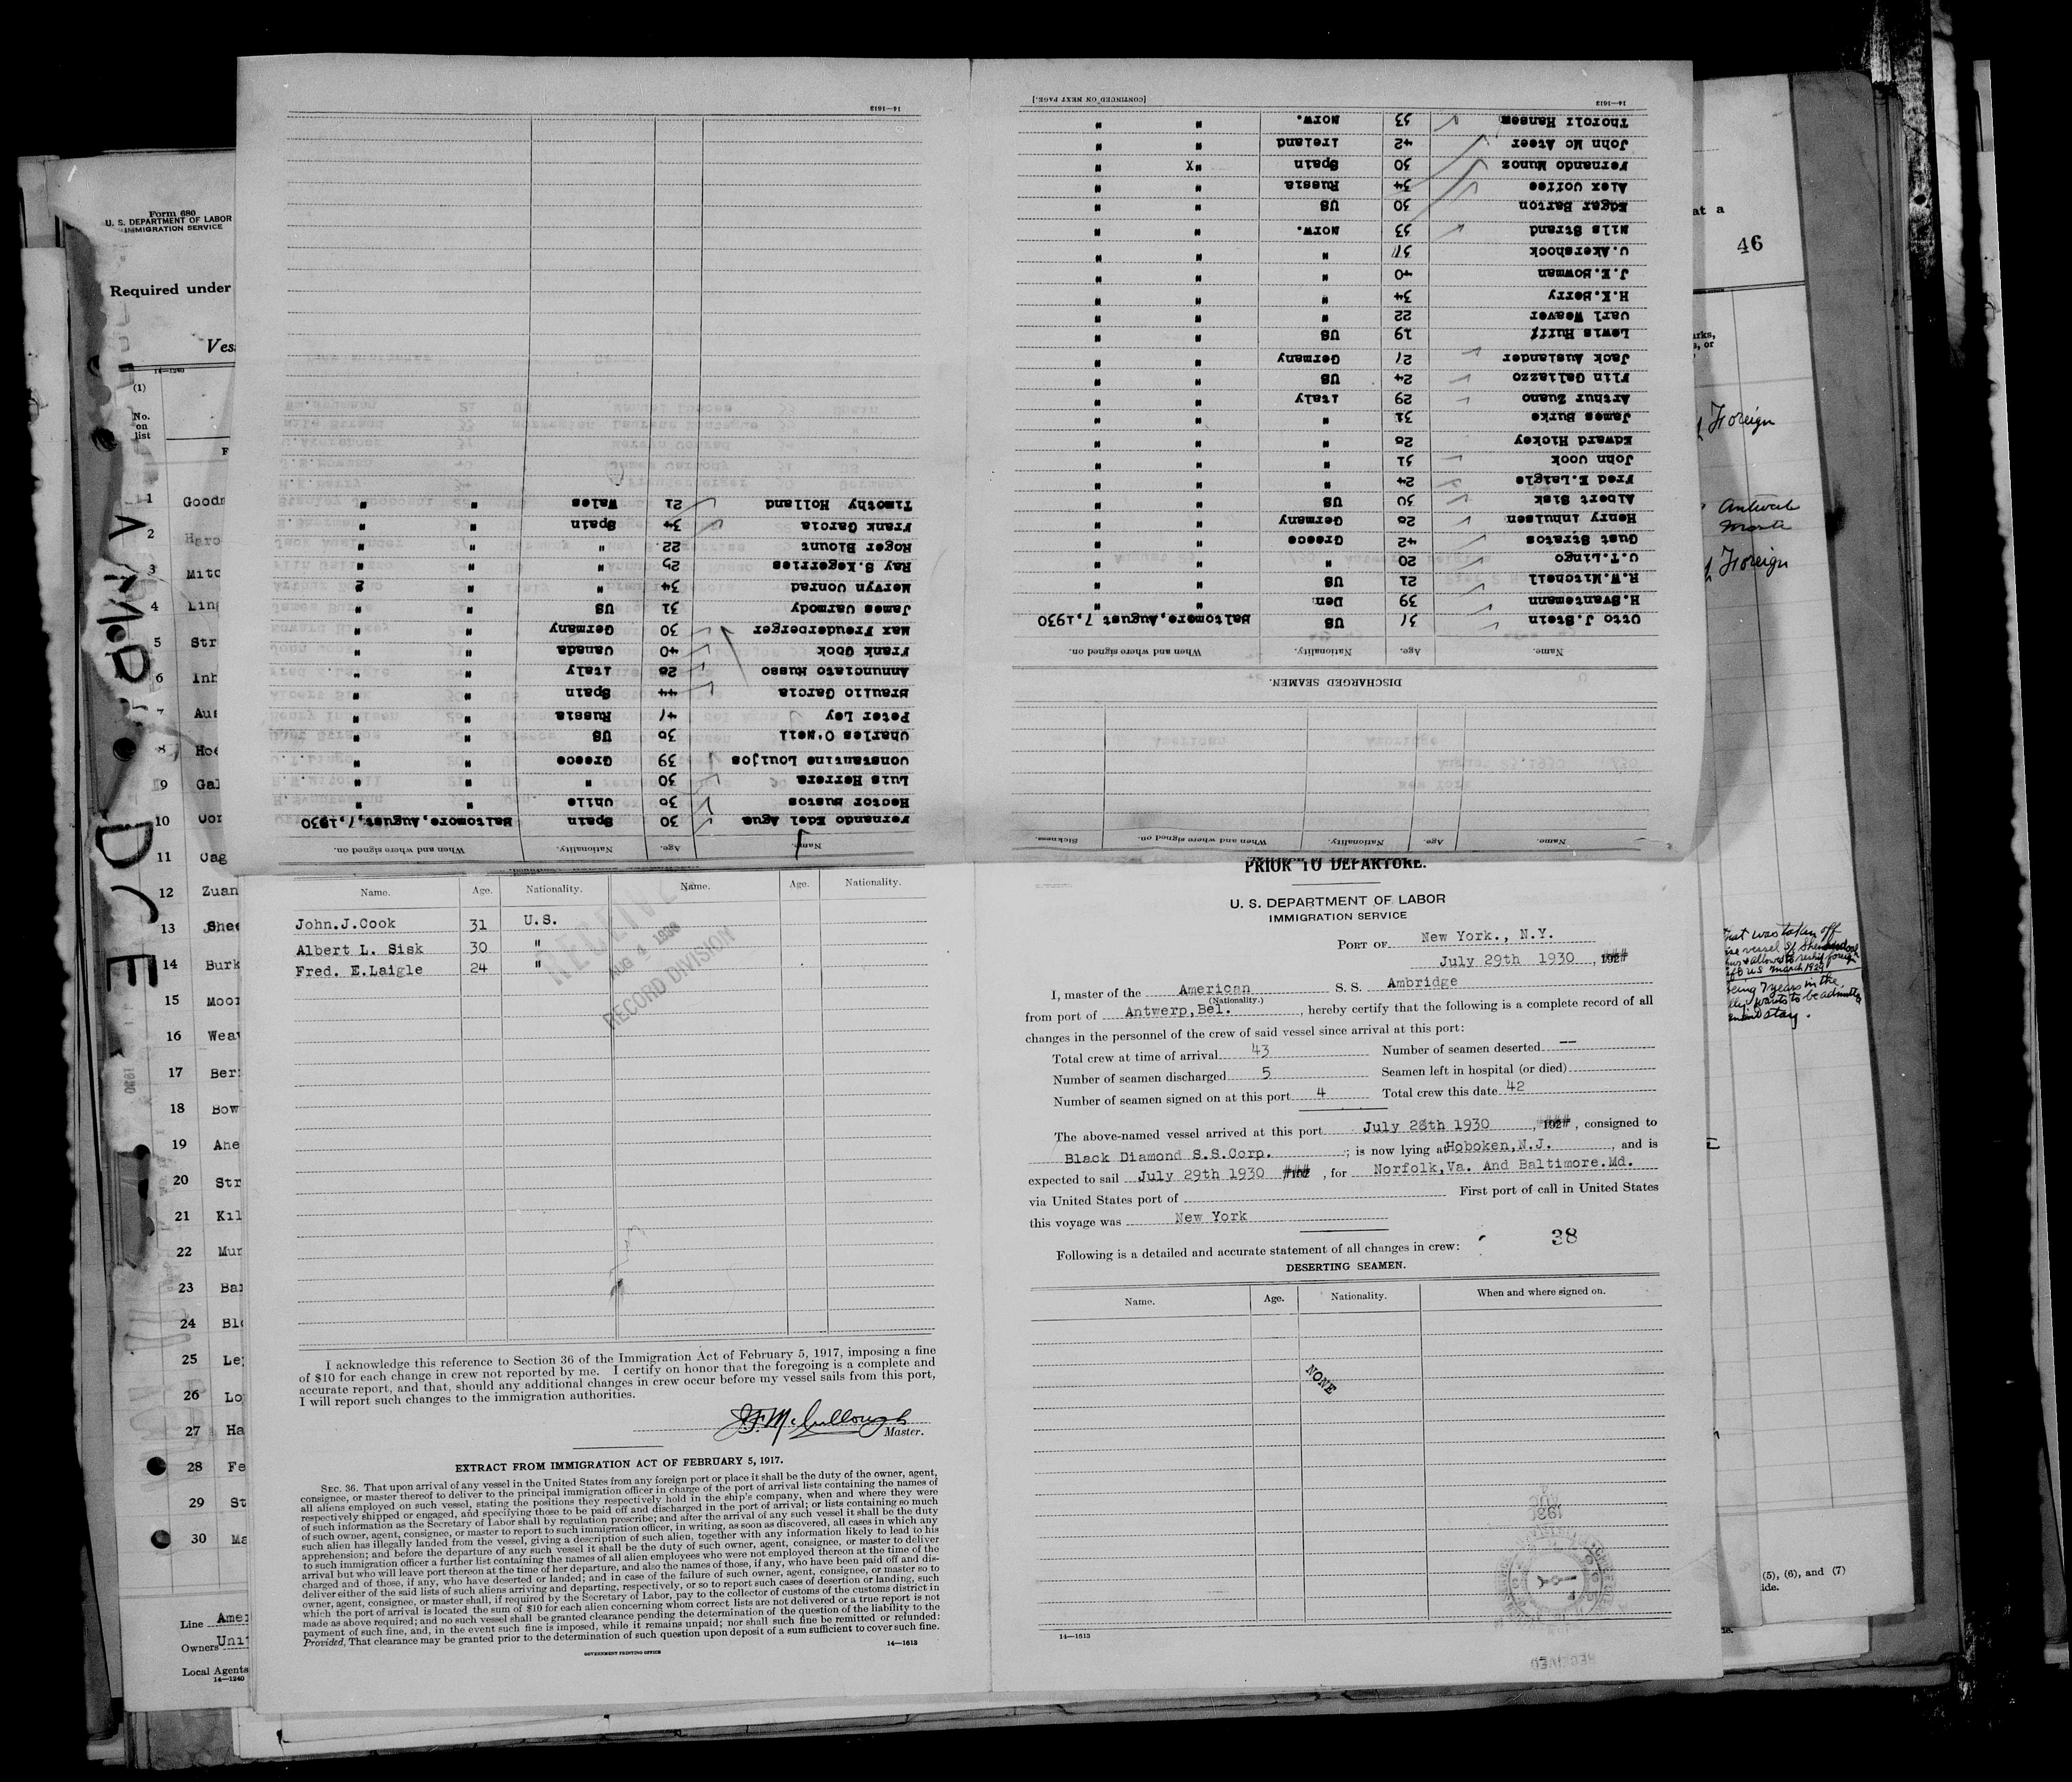 14—1613
[CONTINUED ON NEXT PAGE.]
14—1613
Timothy Holland 21 Wales " "
Frank Garcia 34 Spain " "
Roger Blount 22 " " "
Ray S.Kegerries 25 " " "
Mervyn Conrad 34 " " "
James Carmody 31 US " "
Max Freuderberger 30 Germany " "
Frank Cook 40 Canada " "
Annunciato Russo 28 Italy " "
Braulio Garcia 44 Spain " "
Peter Ley 41 Russia " "
Charles O'Neil 30 US " "
Constantine Louijos 39 Greece " "
Luis Herrera 30 " " "
Hector Bustos 30 Chile " "
Fernando Edel Agua 30 Spain Baltomore,August,7,1930
Name. Age. Nationality. When and where signed on.
Thorolf Hansen 33 Norw. " "
John Mc Ateer 42 Ireland " "
Fernando Munoz 30 Spain "X "
Alex Coffee 34 Russia " "
Edgar Barton 30 US " "
Nils Strand 33 Norw. " "
C.Akershook 31 " " "
J.E.Bowman 40 " " "
H.E.Berry 34 " " "
Carl Weaver 22 " " "
Lewis Huff 19 US " "
Jack Auslander 27 Germany " "
Flin Galiazzo 24 US " "
Arthur Zuano 29 Italy " "
James Burke 31 " " "
Edward Hickey 28 " " "
John Cook 31 " " "
Fred E.Laigle 24 " " "
Albert Sisk 30 US " "
Henry Inhulsen 28 Germany " "
Gust Stratos 42 Greece " "
C.T.Lingo 20 " " "
R.W.Mitchell 21 US " "
H.Svantemann 39 Den " "
Otto J.Stein 31 US Baltomore,August 7,1930
Name. Age. Nationality. When and where signed on.
DISCHARGED SEAMEN.
Name. Age. Nationality. When and where signed on. Sickness.
Form 680
U. S. DEPARTMENT OF LABOR
IMMIGRATION SERVICE
Required under
14—1240
(1)
No.
on
list
1
2
3
4
5
6
7
8
9
10
11
12
13
14
15
16
17
18
19
20
21
22
23
24
25
26
27
28
29
30
Line
Owners
Local Agents
14—1240
Name. Age. Nationality. Name. Age. Nationality.
John.J.Cook 31 U.S.
Albert L. Sisk 30 "
Fred. E.Laigle 24 "
RECORD DIVISION
I acknowledge this reference to Section 36 of the Immigration Act of February 5, 1917, imposing a fine
of $10 for each change in crew not reported by me. I certify on honor that the foregoing is a complete and
accurate report, and that, should any additional changes in crew occur before my vessel sails from this port,
I will report such changes to the immigration authorities.
J.F.McCullough
Master.
EXTRACT FROM IMMIGRATION ACT OF FEBRUARY 5, 1917.
SEC. 36. That upon arrival of any vessel in the United States from any foreign port or place it shall be the duty of the owner, agent,
consignee, or master thereof to deliver to the principal immigration officer in charge of the port of arrival lists containing the names of
all aliens employed on such vessel, stating the positions they respectively hold in the ship's company, when and where they were
respectively shipped or engaged, and specifying those to be paid off and discharged in the port of arrival; or lists containing so much
of such information as the Secretary of Labor shall by regulation prescribe; and after the arrival of any such vessel it shall be the duty
of such owner, agent, consignee, or master to report to such immigration officer, in writing, as soon as discovered, all cases in which any
such alien has illegally landed from the vessel, giving a description of such alien, together with any information likely to lead to his
apprehension; and before the departure of any such vessel it shall be the duty of such owner, agent, consignee, or master to deliver
to such immigration officer a further list containing the names of all alien employees who were not employed thereon at the time of the
arrival but who will leave port thereon at the time of her departure, and also the names of those, if any, who have been paid off and dis-
charged and of those, if any, who have deserted or landed; and in case of the failure of such owner, agent, consignee, or master so to
deliver either of the said lists of such aliens arriving and departing, respectively, or so to report such cases of desertion or landing, such
owner, agent, consignee, or master shall, if required by the Secretary of Labor, pay to the collector of customs of the customs district in
which the port of arrival is located the sum of $10 for each alien concerning whom correct lists are not delivered or a true report is not
made as above required; and no such vessel shall be granted clearance pending the determination of the question of the liability to the
payment of such fine, and, in the event such fine is imposed, while it remains unpaid; nor shall such fine be remitted or refunded:
Provided, That clearance may be granted prior to the determination of such question upon deposit of a sum sufficient to cover such fine.
GOVERNMENT PRINTING OFFICE 14—1613
PRIOR TO DEPARTURE.
U. S. DEPARTMENT OF LABOR
IMMIGRATION SERVICE
PORT OF New York., N.Y.
July 29th 1930 , 192
I, master of the American S. S. Ambridge
(Nationality.)
from port of Antwerp,Bel. , hereby certify that the following is a complete record of all
changes in the personnel of the crew of said vessel since arrival at this port:
Total crew at time of arrival 43 Number of seamen deserted --
Number of seamen discharged 5 Seamen left in hospital (or died)
Number of seamen signed on at this port 4 Total crew this date 42
The above-named vessel arrived at this port July 28th 1930 , 192 , consigned to
Black Diamond S.S.Corp. ; is now lying at Hoboken,N.J. , and is
expected to sail July 29th 1930 192 , for Norfolk,Va. And Baltimore.Md.
via United States port of First port of call in United States
this voyage was New York
38
Following is a detailed and accurate statement of all changes in crew:
DESERTING SEAMEN.
Name. Age. Nationality. When and where signed on.
NONE
14—1613
at a
46
Foreign
Foreign
that was taken off
(5), (6), and (7)